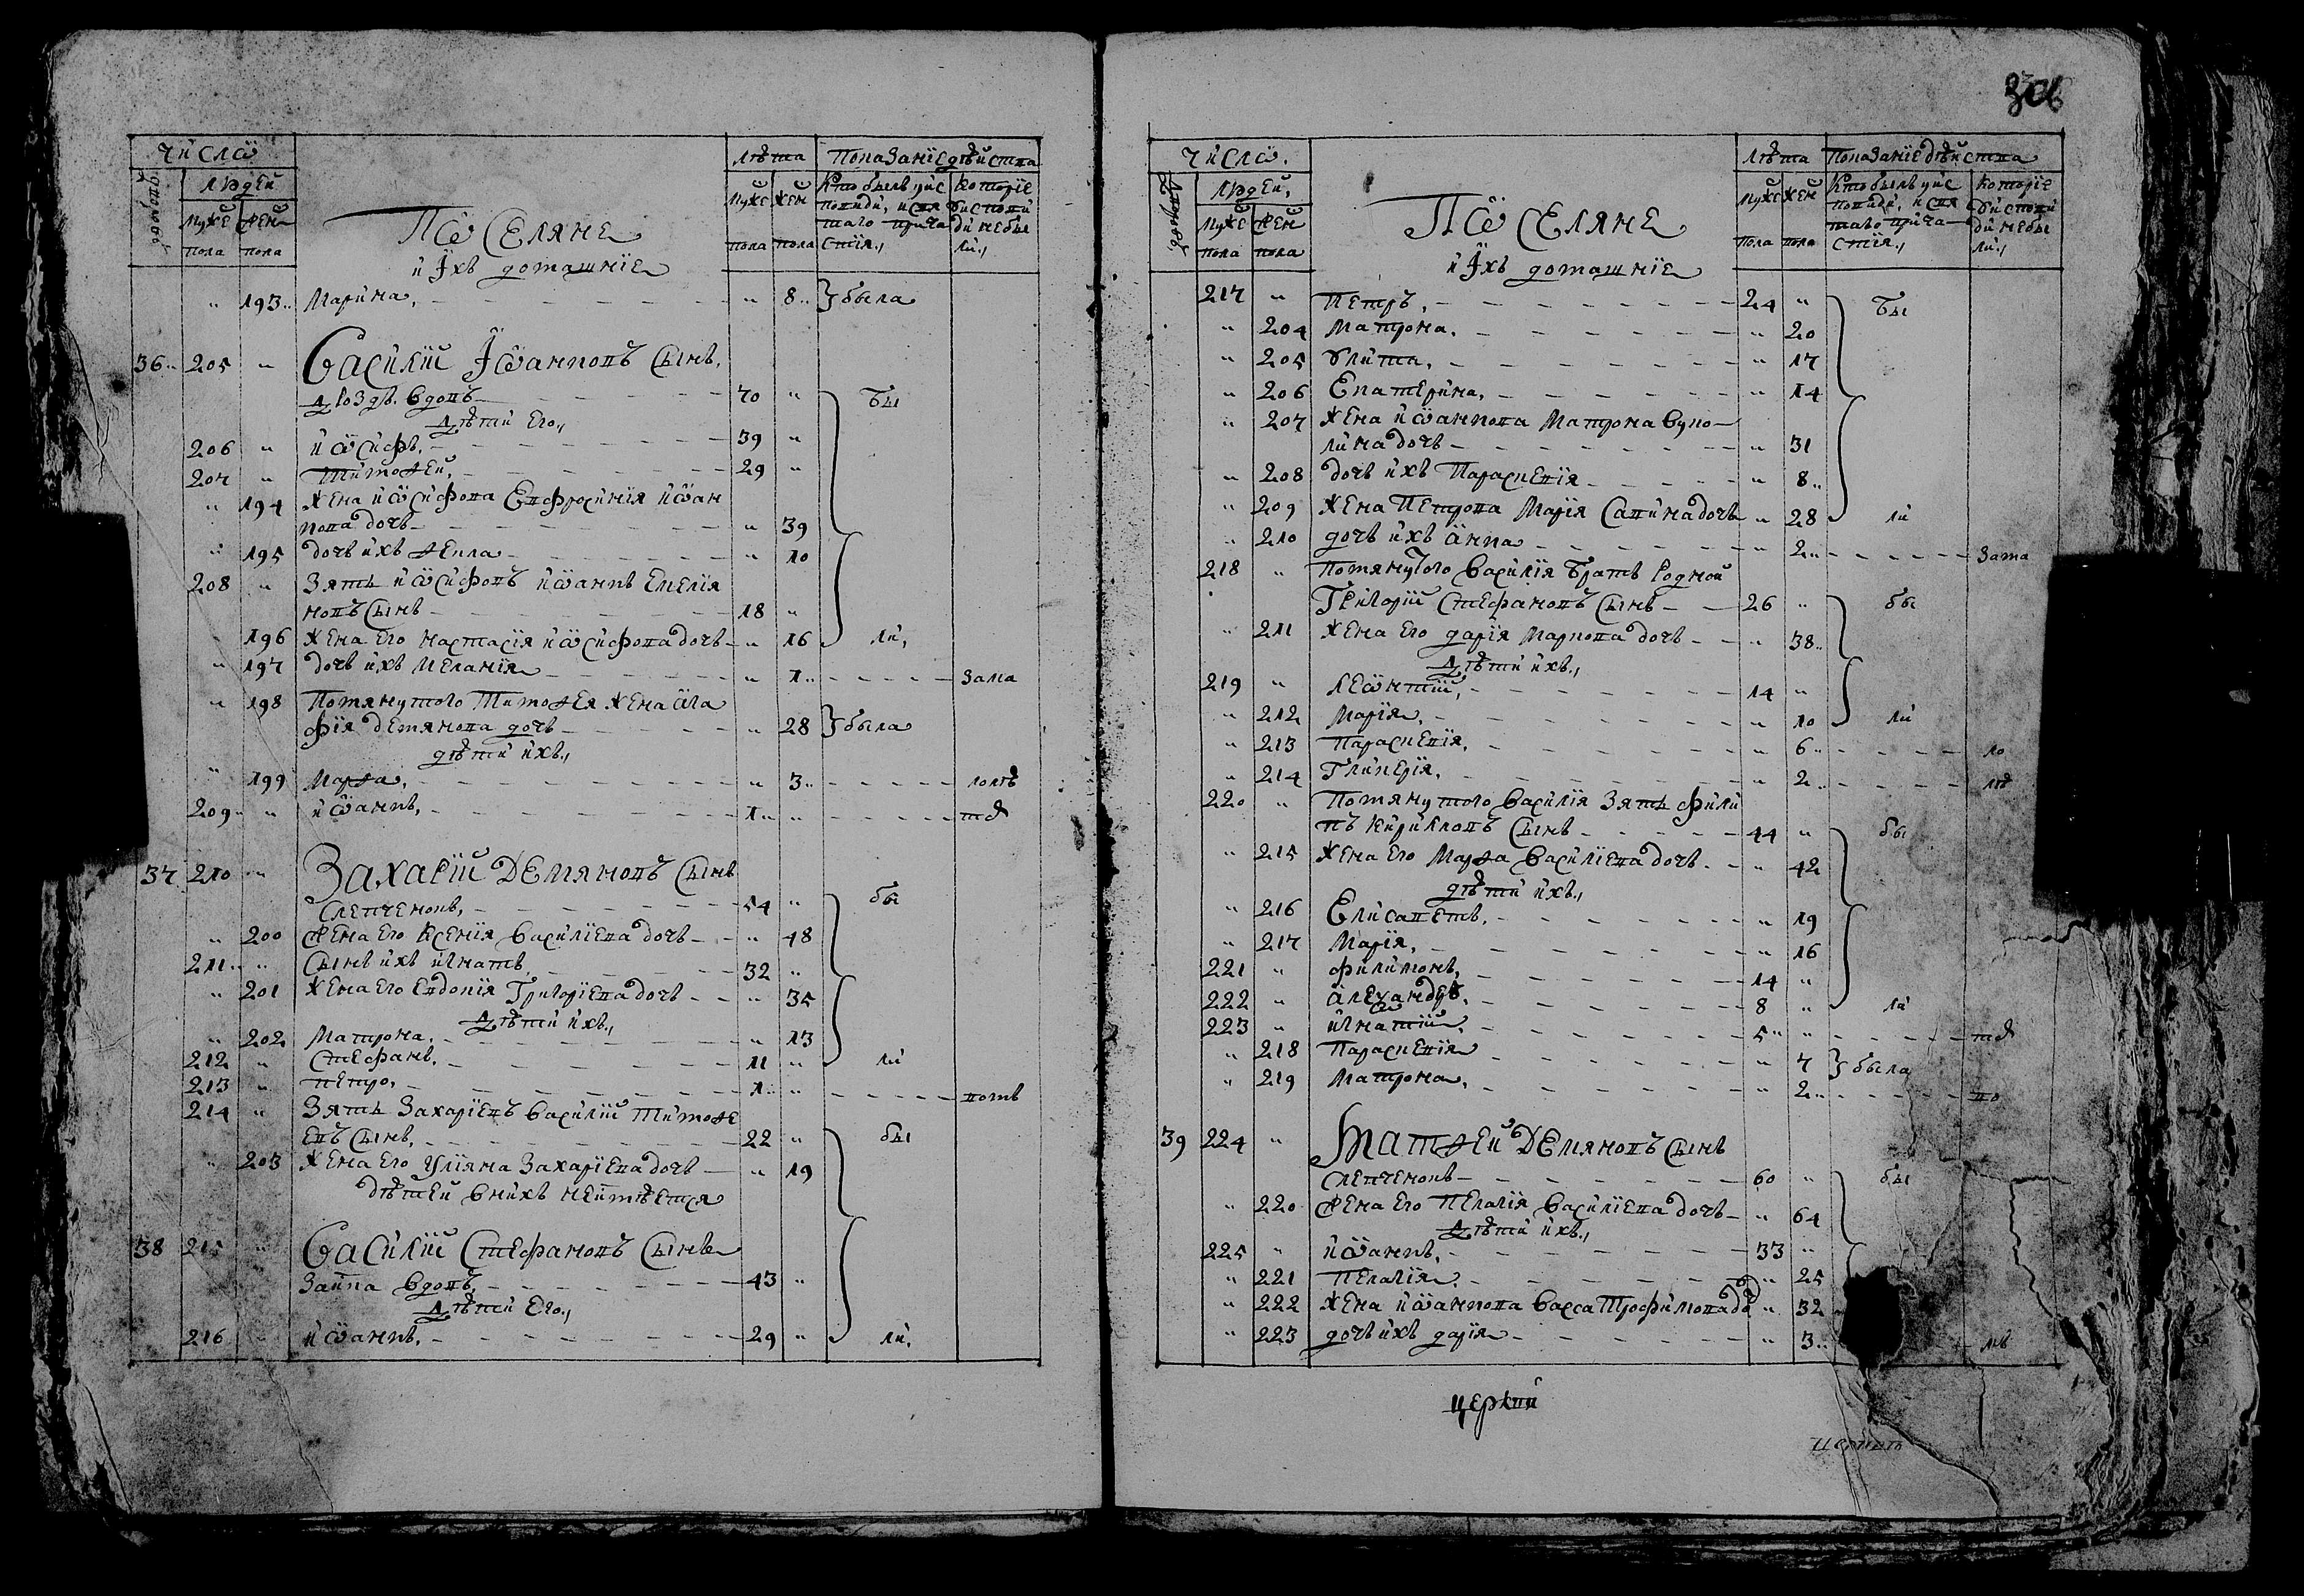 Число
Людей
Лѣта Показаніе дѣйства
дворовъ
Муже Жен
пола пола
Поселяне
и Ихъ домашніе
Муже Жен
пола пола
Кто былъ у ис
повѣди, и свя
таго прича
стія.
Которіе
у исповѣ
ди не бы
ли.
" 193 Марина, " 8 была
36 205 " Василій Іѡанновъ Сынъ,
вдовъ 70 " бы
Дѣти Его,
206 " иѡсифъ, 39 "
207 " Тимоѳей, 29 "
" 194 Жена иѡсифова Евфросинія иѡан
нова дочь " 39
" 195 дочь ихъ Ѳекла " 10
208 " Зять иѡсифовъ иѡаннъ Емелія
новъ Сынъ 18 "
" 196 Жена Его Настасія иѡсифова дочь " 16 ли,
" 197 дочь ихъ Меланія " 1 За ма
" 198 Помянутого Тимоѳея Жена Ага
фія Демянова дочь " 28 была
дѣти ихъ,
" 199 Марѳа, " 3 лолѣ
209 " иѡаннъ, 1 " тст
37 210 " Захарій Демяновъ Сынъ
Слепченокъ, 54 " бы
" 200 Жена Его Ксенія Василіева дочь " 48
211 " Сынъ ихъ игнатъ 32 "
" 201 Жена Его Евдокія Григоріева дочь " 35
Дѣти ихъ,
" 202 Матрона, " 13
212 " Стефанъ, 11 " ли
213 " Петро, 1 " вотъ
214 " Зять Захаріевъ Василій Тимоѳе
евъ Сынъ, 22 " бы
" 203 Жена Его Уліяна Захаріева дочь " 19
дѣтей Внихъ неимѣется
38 215 " Василій Стефановъ Сынъ
Заика вдовъ, 43 "
Дѣти Его,
216 " иѡаннъ, 29 " ли,
306
Число.
Людей,
Лѣта Показаніе дѣйства
дворовъ
Муже Жен
пола пола
Поселяне
и Ихъ домашніе
Муже Жен
пола пола
Кто былъ у ис
повѣди, и свя
таго прича
стія.
Которіе
у исповѣ
ди не бы
ли.
217 " Петръ, 24 " бы
" 204 Матрона, " 20
" 205 Улита, " 17
" 206 Екатерина, " 14
" 207 Жена иѡаннова Матрона Вуко
лина дочь " 31
" 208 дочь ихъ Параскевія " 8
" 209 Жена Петрова Марія Савина дочь " 28 ли
" 210 дочь ихъ Анна " 2 За ма
218 " Помянутого Василія братъ родной
Григорій Стефановъ Сынъ 26 " бы
" 211 Жена Его дарія Маркова дочь " 38
Дѣти ихъ,
219 " Леѡнтій, 14 "
" 212 Марія, " 10 ли
" 213 Параскевія, " 6 ло
" 214 Гликерія, " 2 лѣ
220 " Помянутого Василія Зять Фили
пъ Кириловъ Сынъ 44 " бы
" 215 Жена Его Марѳа Василіева дочь " 42
дѣти ихъ,
" 216 Елисаветъ, " 19
" 217 Марія, " 16
221 " Филимонъ, 14 "
222 " Александръ, 8 " ли
223 " игнатій, 5 " тст
" 218 Параскевія " 7 была
" 219 Матрона, " 2 во
39 224 " Матѳей Демяновъ Сынъ
Слепченокъ 60 " бы
" 220 Жена Его Пелагія Василіева дочь " 64
Дѣти ихъ,
225 " иѡаннъ, 33 "
" 221 Пелагія, " 25
" 222 Жена иѡаннова Васса Трофимова до " 32
" 223 дочь ихъ дарія " 3 лѣ
церкви